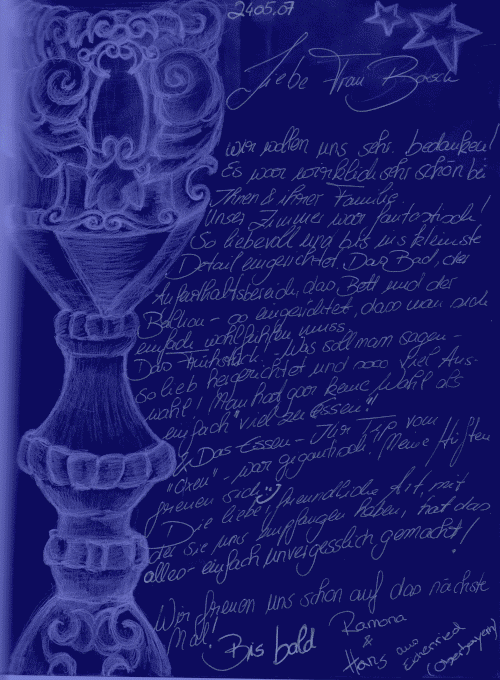 24.05.07
Liebe Frau Bosch
wir wollen uns sehr bedanken!
Es war wirklich sehr schön bei
Ihnen & ihrer Familie.
Unser Zimmer war fantastisch!
So liebevoll und bis ins kleinste
Detail eingerichtet. Das Bad, der
Aufenthaltsbereich, das Bett und der
Balkon - so eingerichtet, dass man sich
einfach wohlfühlen muss.
Das Frühstück! - Was soll man sagen -
So lieb hergerichtet und sooo viel Aus-
wahl! Man hat gar keine Wahl als
einfach "viel zu essen"!
Das Essen - Ihr Tip vom
"Oxen" - war gigantisch! Meine Hüften
freuen sich
Die liebe, freundliche Art, mit
der sie uns empfangen haben, hat das
alles einfach unvergesslich gemacht!
Wir freuen uns schon auf das nächste
Mal!
Bis bald
Ramona
&
Hans aus
(Oberbayern)